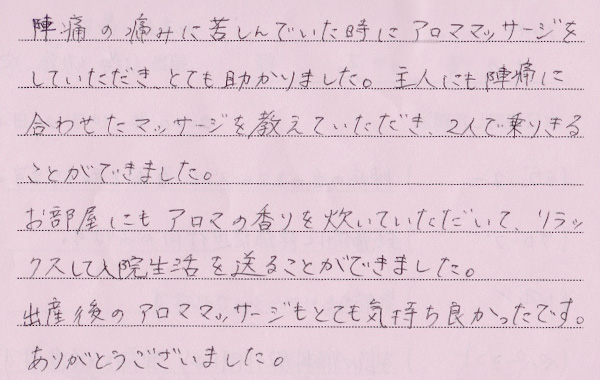 陣痛の痛みに苦しんでいた時にアロママッサージを
していただき、とても助かりました。主人にも陣痛に
合わせたマッサージを教えていただき、2人で乗りきる
ことができました。
お部屋にもアロマの香りを炊いていただいて、リラッ
クスして入院生活を送ることができました。
出産後のアロママッサージもとても気持ち良かったです。
ありがとうございました。